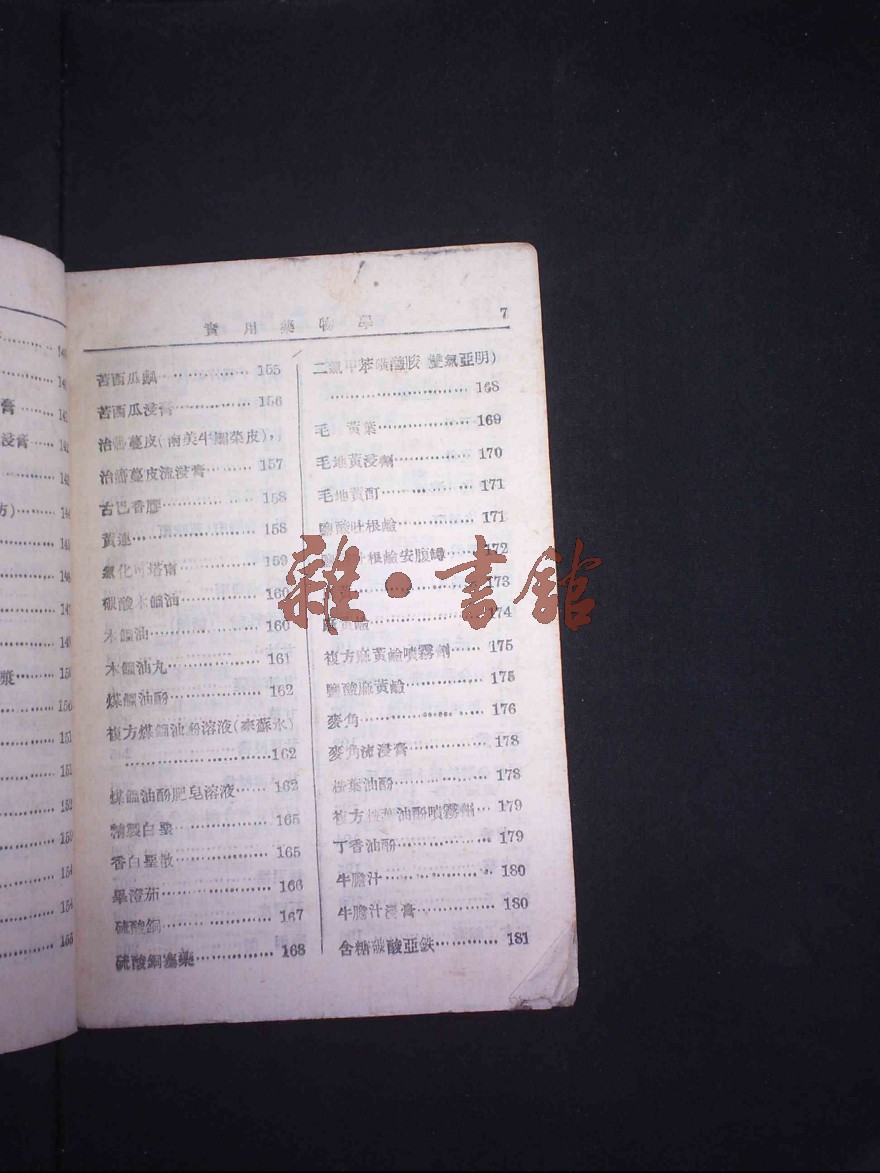 實用藥物學
7
苦西瓜瓤 155
苦西瓜浸膏 156
治癌蔓皮(南美牛嬭菜皮),
治癌蔓皮流浸膏 157
古巴香膠 158
黃連 158
氯化可塔甯 159
碳酸木餾油 160
木餾油 160
木餾油丸 161
煤餾油酚 162
複方煤餾油酚溶液(來蘇水)
162
煤餾油酚肥皂溶液 162
精製白堊 165
香白堊散 165
畢澄茄 166
硫酸銅 167
硫酸銅塞藥 168
二氯甲苯磺醯胺 雙氯亞明)
168
毛 黃葉 169
毛地黃浸劑 170
毛地黃酊 171
鹽酸吐根鹼 171
根鹼安瓿 172
173
174
複方麻黃鹼噴霧劑 175
鹽酸麻黃鹼 175
麥角 176
麥角流浸膏 178
桉葉油酚 178
複方桉葉油酚噴霧劑 179
丁香油酚 179
牛膽汁 180
牛膽汁浸膏 180
含糖碳酸亞鉄 181
膏
浸膏
方)
漿
雜·書館